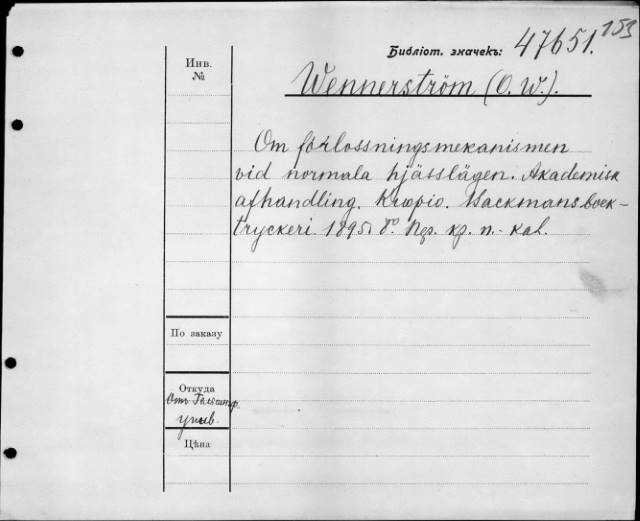 153
Библіот. значекъ: 47651.
Инв.
№
Wennerström (O. W.).
Om förlossningsmekanismen
vid normala hjässlägen. Akademisk
afhandling. Kuopio. Backmans boek-
tryckeri. 1895. 8º. кр. н.-кал.
По заказу
Откуда
Отъ Гельсингф.
унив.
Цѣна